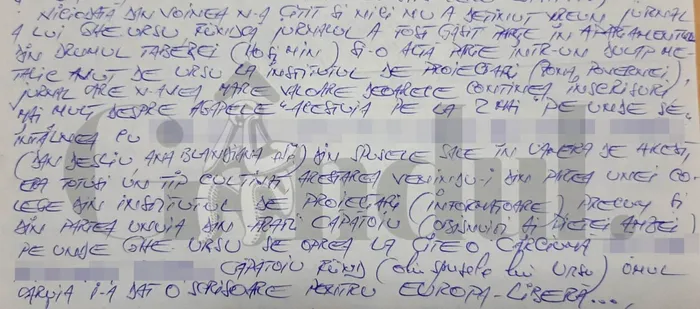 NICIODATĂ DIN VOINEA N-A CITIT ȘI NICI NU A DEȚINUT VREUN JURNAL
A LUI GHE URSU, FIINDCĂ JURNALUL A FOST GĂSIT PARTE IN APARTAMENTUL
DIN DRUMUL TABEREI (HOȘIMIN) ȘI-O ALTĂ PARTE INTR-UN DULAP ME-
TALIC AVUT DE URSU LA INSTITUTUL DE PROIECTARI (ZONA POVERNEI),
JURNAL CARE N-AVEA MARE VALOARE DEOARECE CONTINEA ÎNSCRISURI
MAI MULT DESPRE AGAPELE "ACESTUIA PE LA 2 MAI" PE UNDE SE
ÎNTÂLNEA CU
(DAN DESLIU ANA BLANDIANA) DIN SPUSELE SALE ÎN CAMERA DE AREST
ERA TOTUSI UN TIP CULTIVAT ARESTAREA VENINDU-I DIN PARTEA UNEI CO-
LEGE DIN INSTITUTUL DE PROIECTARI (INFORMATOARE) PRECUM ȘI
DIN PARTEA UNUIA DIN FRATII CĂPĂTOIU (OBISNUIT AI PIETEI AMZEI)
PE UNDE GHE URSU SE OPREA LA CÎTE O CÂRCIUMA
CĂPĂTOIU FIIND (din spusele lui URSU) OMUL
CARUIA I-A DAT O SCRISOARE PENTRU EUROPA-LIBERĂ...,
Gîndul.